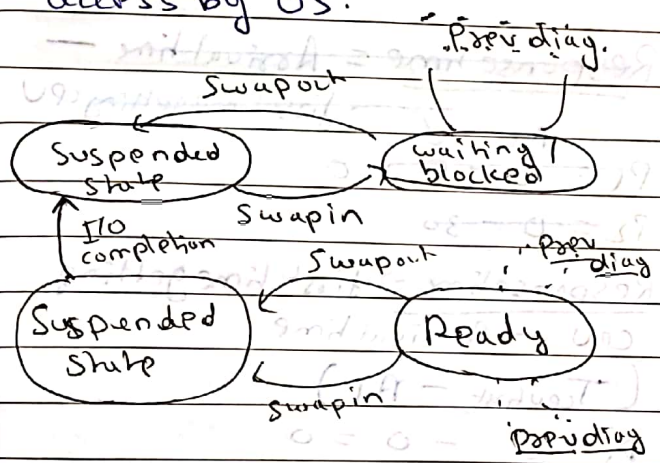 access by OS.
Prev diag.
Swapout
Suspended
state
waiting /
blocked
Swapin
I/O
completion
Swapout
prev
diag
Suspended
state
Ready
swapin
prev diag